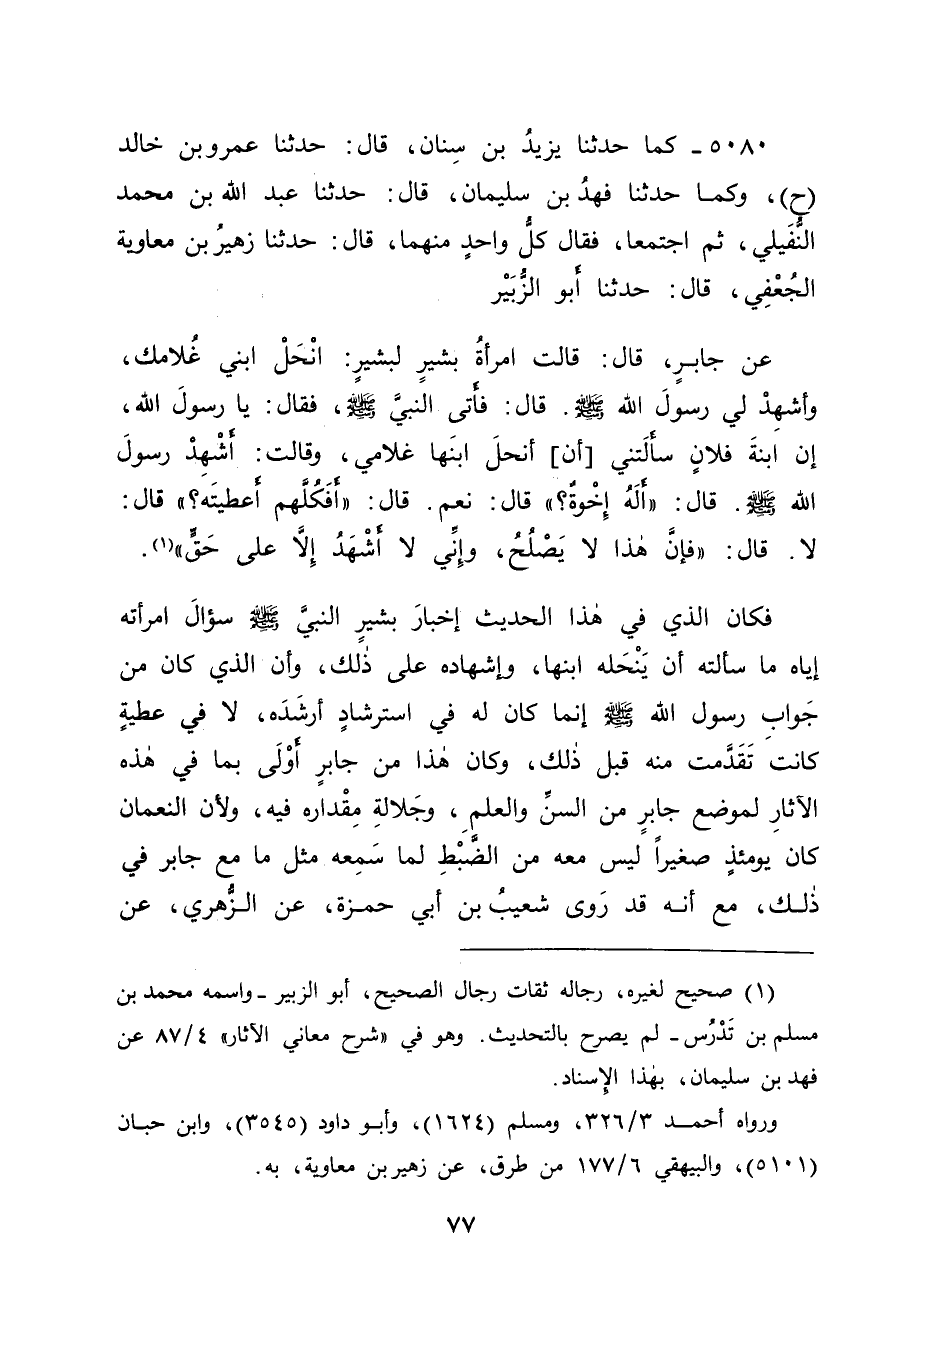 ٥٠٨٠ ـ كما حدثنا يزيدُ بن سِنان، قال: حدثنا عمرو بن خالد
(ح)، وكما حدثنا فهدُ بن سليمان، قال: حدثنا عبد الله بن محمد
النُّفَيلي، ثم اجتمعا، فقال كلُّ واحدٍ منهما، قال: حدثنا زهيرُ بن معاوية
الجُعْفِي، قال: حدثنا أبو الزُّبَيْر
عن جابرٍ، قال: قالت امرأةُ بشيرٍ لبشيرٍ: انْحَلْ ابني غُلامك،
وأشهِدْ لي رسولَ الله ﷺ. قال: فأتى النبيَّ ﷺ، فقال: يا رسولَ الله،
إن ابنةَ فلانٍ سألَتني [أن] أنحلَ ابنَها غلامي، وقالت: أَشْهِدْ رسولَ
الله ﷺ. قال: «أَلَهُ إِخْوةٌ؟» قال: نعم. قال: «أَفَكُلَّهم أَعطيتَه؟» قال:
لا. قال: «فإنَّ هٰذا لا يَصْلُحُ، وإنِّي لا أَشْهَدُ إِلَّا على حَقٍّ»(١).
فكان الذي في هٰذا الحديث إخبارَ بشيرٍ النبيَّ ﷺ سؤالَ امرأته
إياه ما سألته أن يَنْحَله ابنها، وإشهاده على ذٰلك، وأن الذي كان من
جَوابِ رسول الله ﷺ إنما كان له في استرشادٍ أرشَدَه، لا في عطيةٍ
كانت تَقَدَّمت منه قبل ذٰلك، وكان هٰذا من جابرٍ أَوْلَى بما في هٰذه
الآثارِ لموضع جابرٍ من السنِّ والعلمِ، وجَلالةِ مِقْداره فيه، ولأن النعمان
كان يومئذٍ صغيراً ليس معه من الضَّبْطِ لما سَمِعه مثل ما مع جابر في
ذٰلك، مع أنه قد رَوى شعيبُ بن أبي حمزة، عن الزُّهري، عن
(١) صحيح لغيره، رجاله ثقات رجال الصحيح، أبو الزبير ـ واسمه محمد بن
مسلم بن تَدْرُس ـ لم يصرح بالتحديث. وهو في «شرح معاني الآثار» ٨٧/٤ عن
فهد بن سليمان، بهٰذا الإِسناد.
ورواه أحمد ٣٢٦/٣، ومسلم (١٦٢٤)، وأبو داود (٣٥٤٥)، وابن حبان
(٥١٠١)، والبيهقي ١٧٧/٦ من طرق، عن زهير بن معاوية، به.
٧٧